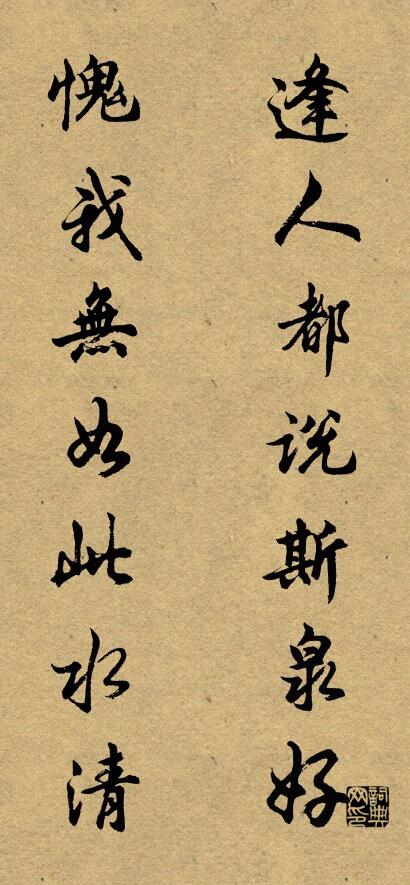 逢人都说斯泉好
愧我無如此水清
詞典網印